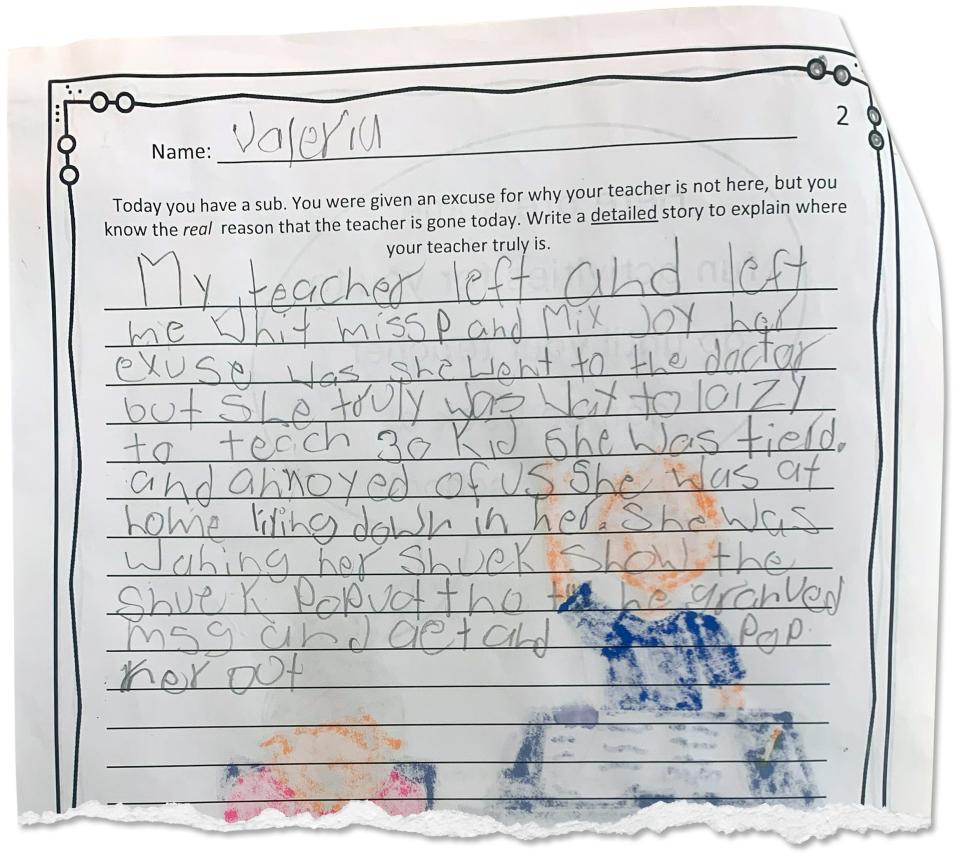 2
Name: Valeria
Today you have a sub. You were given an excuse for why your teacher is not here, but you
know the real reason that the teacher is gone today. Write a detailed story to explain where
your teacher truly is.
My teacher left and left
me whit miss P and Mix Joy her
exuse was she went to the doctar
but she truly was way to laizy
to teach 30 kid she was tierd.
and annoyed of us she was at
home liying down in her. she was
wahing her shuek show the
shuek Popuot the he granved
msg and aet and Pop
her out